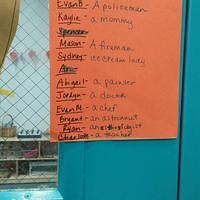 Evan B - A policeman
Kaylie - a mommy
Spencer
Mason - A fireman
Sydney - ice cream lady
Abigail - a painter
Jordyn - a doctor
Evan M. - a chef
Bryant - an astronaut
Ryan -
Charlotte - a teacher